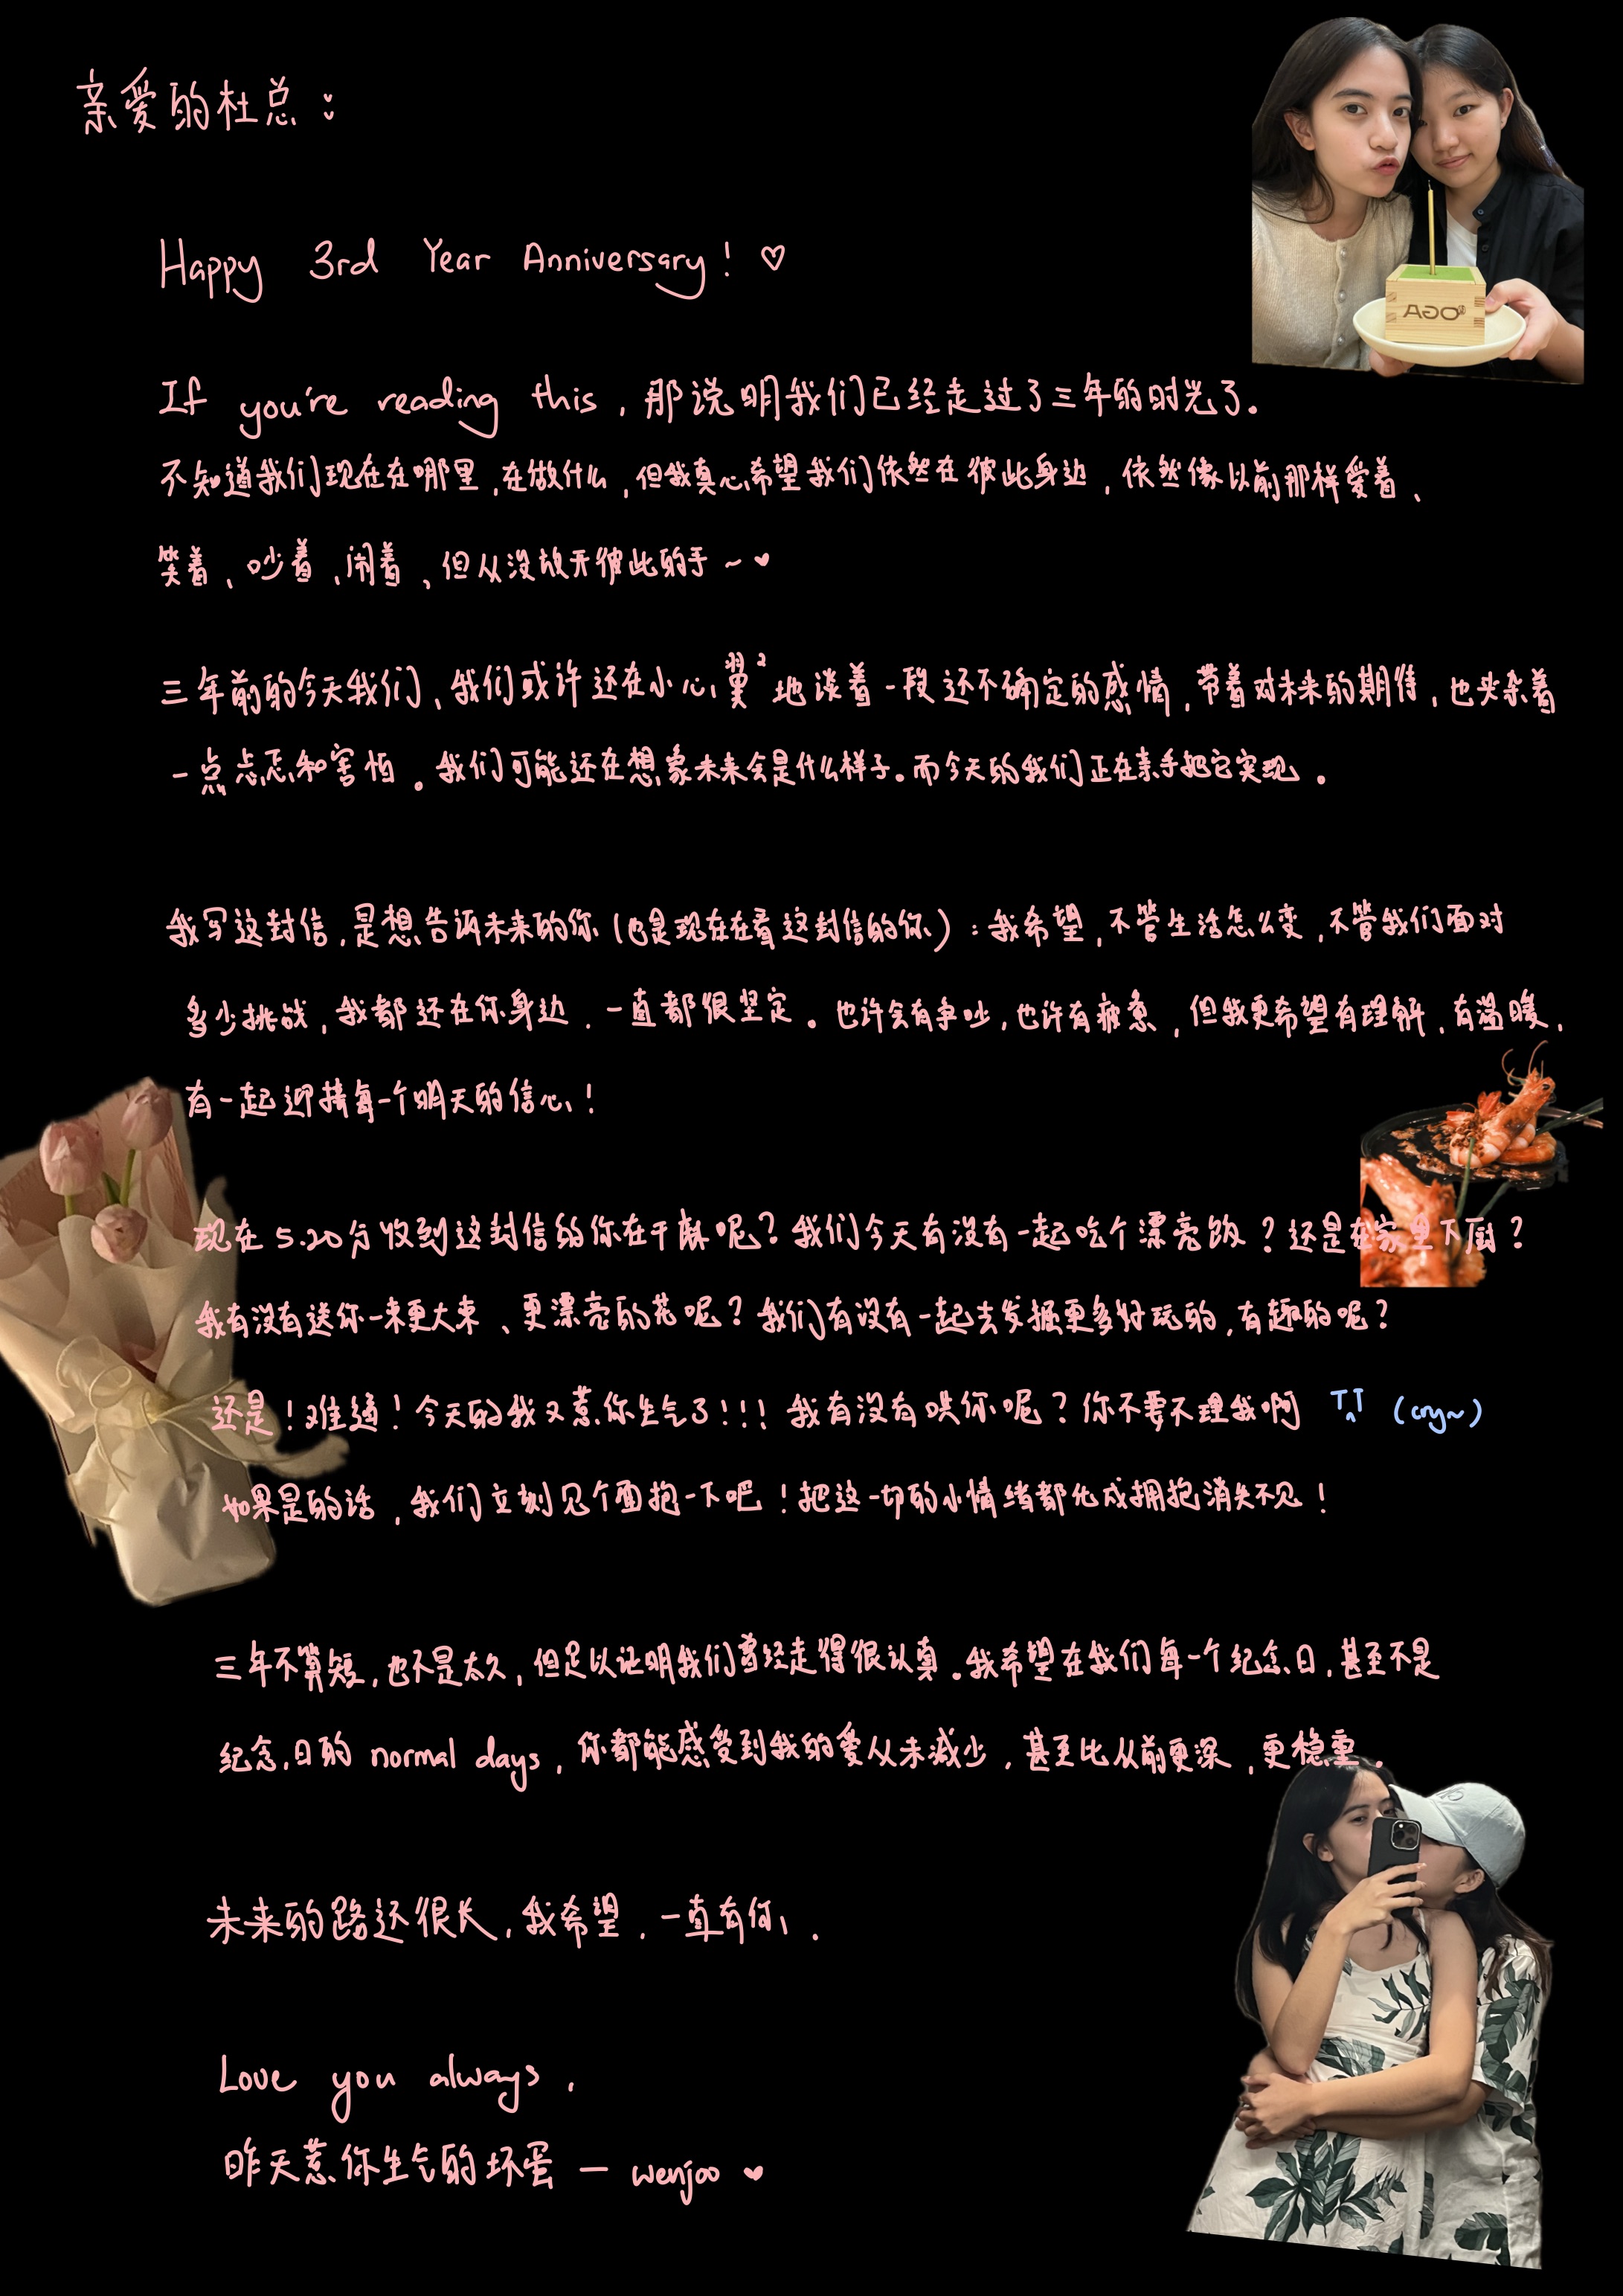 亲爱的杜总：
Happy 3rd Year Anniversary! ♡
If you're reading this，那说明我们已经走过了三年的时光了。
不知道我们现在在哪里，在做什么，但我真心希望我们依然在彼此身边，依然像以前那样爱着、
笑着、吵着、闹着、但从没放开彼此的手~♥
三年前的今天我们、我们或许还在小心翼²地谈着一段还不确定的感情，带着对未来的期待，也夹杂着
一点点忐和害怕。我们可能还在想象未来会是什么样子。而今天的我们正在亲手把它实现。
我写这封信，是想告诉未来的你（也是现在在看这封信的你）：我希望，不管生活怎么变，不管我们面对
多少挑战，我都还在你身边，一直都很坚定。也许会有争吵，也许有疲惫，但我更希望有理解，有温暖，
有一起迎接每一个明天的信心！
现在5.20分收到这封信的你在干嘛呢？我们今天有没有一起吃个漂亮饭？还是在家里下厨？
我有没有送你一束更大束、更漂亮的花呢？我们有没有一起去发掘更多好玩的，有趣的呢？
还是！难道！今天的我又惹你生气了！！！我有没有哄你呢？你不要不理我啊 T^T (cry~)
如果是的话，我们立刻见个面抱一下吧！把这一切的小情绪都化成拥抱消失不见！
三年不算短，也不是太久，但足以证明我们曾经走得很认真。我希望在我们每一个纪念日，甚至不是
纪念日的 normal days，你都能感受到我的爱从未减少，甚至比从前更深，更稳重。
未来的路还很长，我希望，一直有你。
Love you always，
昨天惹你生气的坏蛋 — wenjoo ♥
OGA